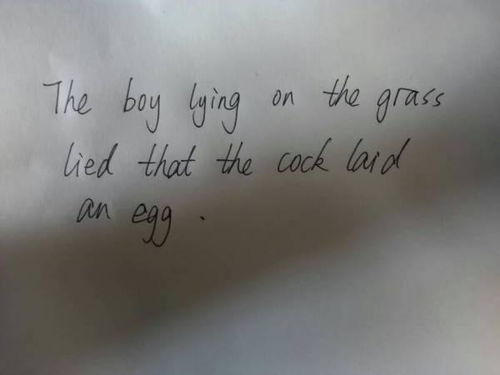 The boy lying on the grass
lied that the cock laid
an egg.